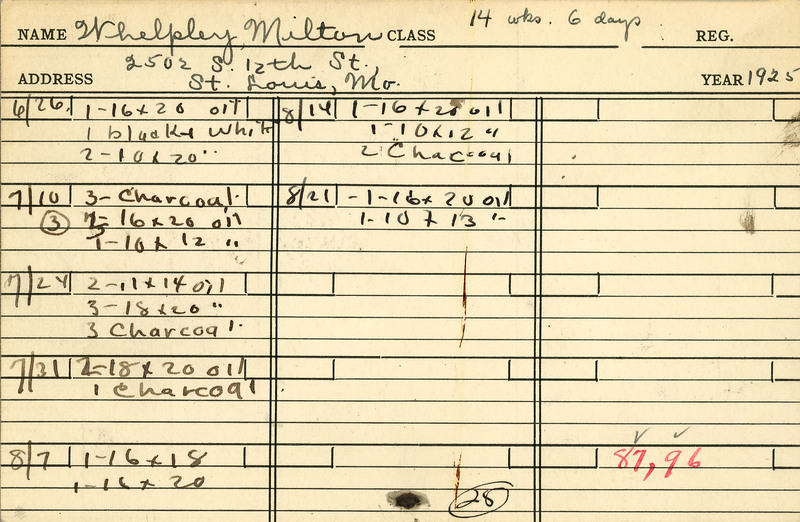 14 wks. 6 days
NAME Whelpley, Milton CLASS REG.
2502 S. 12th St.,
ADDRESS St. Louis, Mo. YEAR 1925
6/26. 1-16x20 oil
1 black & White
2-10x20 "
7/10 3-Charcoal.
③ 16x20 oil
1-10x12 "
7/24 2-11x14 oil
3-18x20 "
3 Charcoal.
7/31 2-18x20 oil
1 Charcoal
8/7 1-16x18
1-16x20
8/14 1-16x20 oil
1-10x12 "
2 Charcoal
8/21 -1-16x20 oil
1-10x13 "
28
87, 96